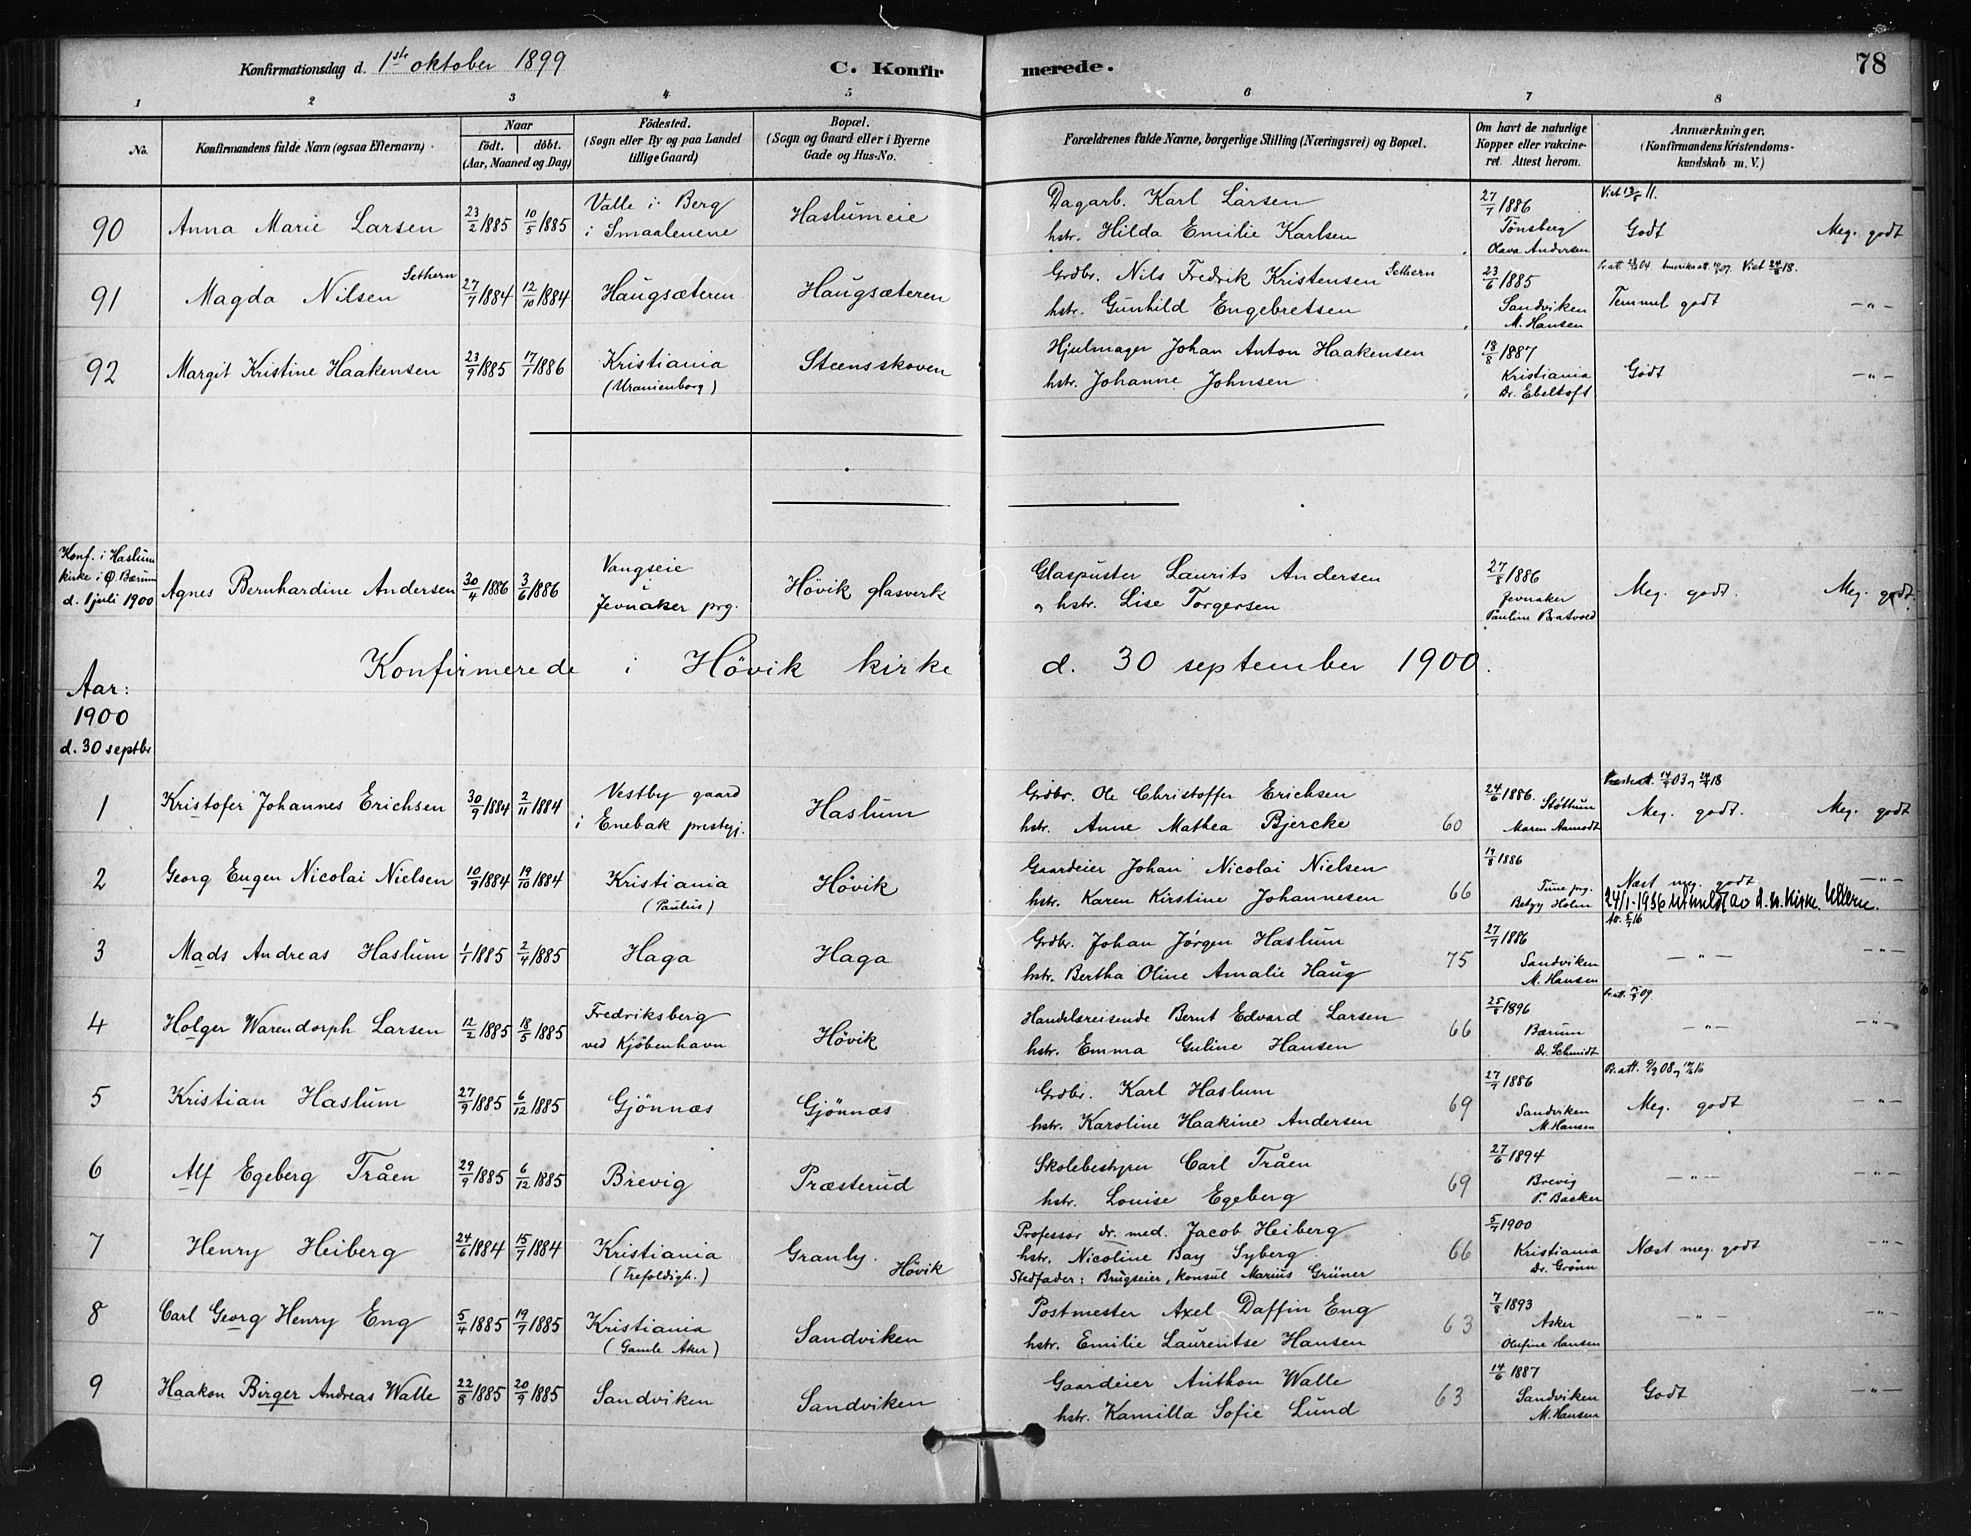 Konfirmationsdag d. 1ste oktober 1899
C. Konfirmerede.
78
1 2 3 4 5 6 7 8
No.
Konfirmandens fulde Navn (ogsaa Efternavn)
Naar
födt. döbt.
(Aar, Maaned og Dag)
Födested.
(Sogn eller By og paa Landet
tillige Gaard)
Bopæl.
(Sogn og Gaard eller i Byerne
Gade og Hus-No.
Forældrenes fulde Navne, borgerlige Stilling (Næringsvei) og Bopæl.
Om havt de naturlige
Kopper eller vaccine-
ret. Attest herom.
Anmærkninger.
(Konfirmandens Kristendoms-
kundskab m. V.)
90 Anna Marie Larsen 23/2 1885 10/5 1885
Valle i Berg
i Smaalenene
Haslumeie
Dagarb. Karl Larsen
hstr. Hilda Emilie Karlsen
27/7 1886
Tönsberg
Olava Andersen
Viet 13/5 11.
Godt Meg. godt
91 Magda Nilsen Sethern 27/7 1884 12/10 1884
Haugsæteren
Haugsæteren
Grdbr. Nils Fredrik Kristensen Sethern
hstr. Gunhild Engebretsen
23/6 1885
Sandviken
M. Hansen
Temmel godt —"—
92 Margit Kristine Haakensen 23/9 1885 17/1 1886
Kristiania
(Uranienborg)
Steensskoven
Hjulmager Johan Anton Haakensen
hstr. Johanne Johnsen
18/8 1887
Kristiania
Dr. Ebeltoft
Godt —"—
Konf. i Haslum
kirke i Ö. Bærum
d. 1 juli 1900
Agnes Bernhardine Andersen 30/4 1886 3/6 1886
Vangseie
i
Jevnaker prg.
Hövik glasverk
Glaspuster Laurits Andersen
og hstr. Lise Torgersen
27/8 1886
Jevnaker
Pauline Bratvold
Meg. godt. Meg. godt.
Konfirmerede i Hövik kirke d. 30 september 1900.
Aar:
1900
d. 30 septbr
1 Kristofer Johannes Erichsen 30/9 1884 2/11 1884
Vestby gaard
i Enebak prestegj.
Haslum
Grdbr. Ole Christoffer Erichsen
hstr. Anne Mathea Bjercke 60
24/6 1886.
Maren Aamodt
Meg. godt. Meg. godt
2 Georg Eugen Nicolai Nielsen 10/9 1884 19/10 1884
Kristiania
(Paulus)
Hövik
Gaardeier Johan Nicolai Nielsen
hstr. Karen Kirstine Johannesen 66
19/8 1886
Tune prg.
Betzy Holm
Næst meg. godt —"—
24/1-1936 utmeldt av d. n. Kirke. Ullern.
3 Mads Andreas Haslum 1/1 1885 2/4 1885
Haga
Haga
Grdbr. Johan Jörgen Haslum
hstr. Bertha Oline Amalie Haug 75
27/7 1886
Sandviken
M. Hansen
—"— —"—
4 Holger Warendorph Larsen 12/2 1885 18/5 1885
Fredriksberg
ved Kjöbenhavn
Hövik
Handelsreisende Bernt Edvard Larsen
hstr. Emma Guline Hansen 66
25/8 1896
Bærum
Dr. Schmidt
—"— —"—
5 Kristian Haslum 27/9 1885 6/12 1885
Gjönnæs
Gjönnæs
Grdbr. Karl Haslum
hstr. Karoline Haakine Andersen 69
27/7 1886
Sandviken
M. Hansen
Meg. godt —"—
6 Alf Egeberg Tråen 29/9 1885 6/12 1885
Brevig
Præsterud
Skolebestyrer Carl Tråen
hstr. Louise Egeberg 69
27/6 1894
Brevig
P. Backer
—"— —"—
7 Henry Heiberg 24/6 1884 15/7 1884
Kristiania
(Trefoldigh.)
Granly.
Hövik
Professor dr. med. Jacob Heiberg
hstr. Nicoline Bay Syberg
Stedfader: Brugseier, konsul Marius Grüner
66
5/7 1900
Kristiania
Dr. Grönn
Næst meg. godt —"—
8 Carl Georg Henry Eng 5/4 1885 19/7 1885
Kristiania
(Gamle Aker)
Sandviken
Postmester Axel Daffin Eng
hstr. Emilie Laurentse Hansen 63
7/8 1893
Asker
Olefine Hansen
—"— —"—
9 Haakon Birger Andreas Walle 22/8 1885 20/9 1885
Sandviken
Sandviken
Gaardeier Anthon Walle
hstr. Kamilla Sofie Lund 63
14/6 1887
Sandviken
M. Hansen
Godt —"—